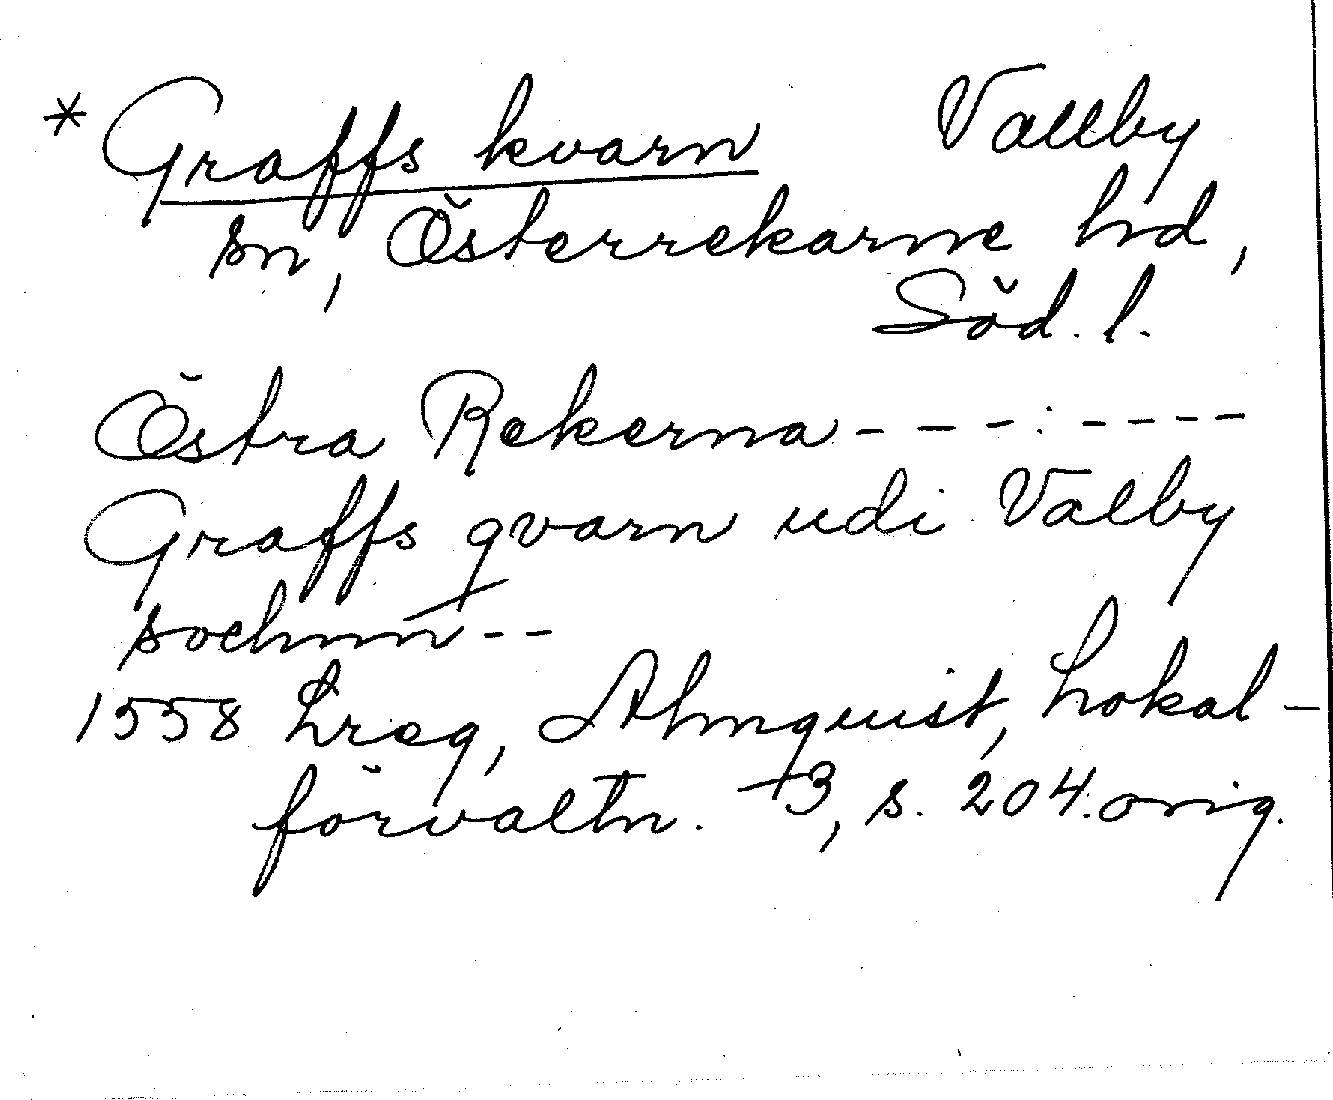 * Graffs kvarn Vallby
sn, Österrekarne hd,
Söd. l.
Östra Rekerna - - - : - - - -
Graffs qvarn udi Valby
sochnn - -
1558 Lreg, Almquist, Lokal-
förvaltn. 3, s. 204. orig.